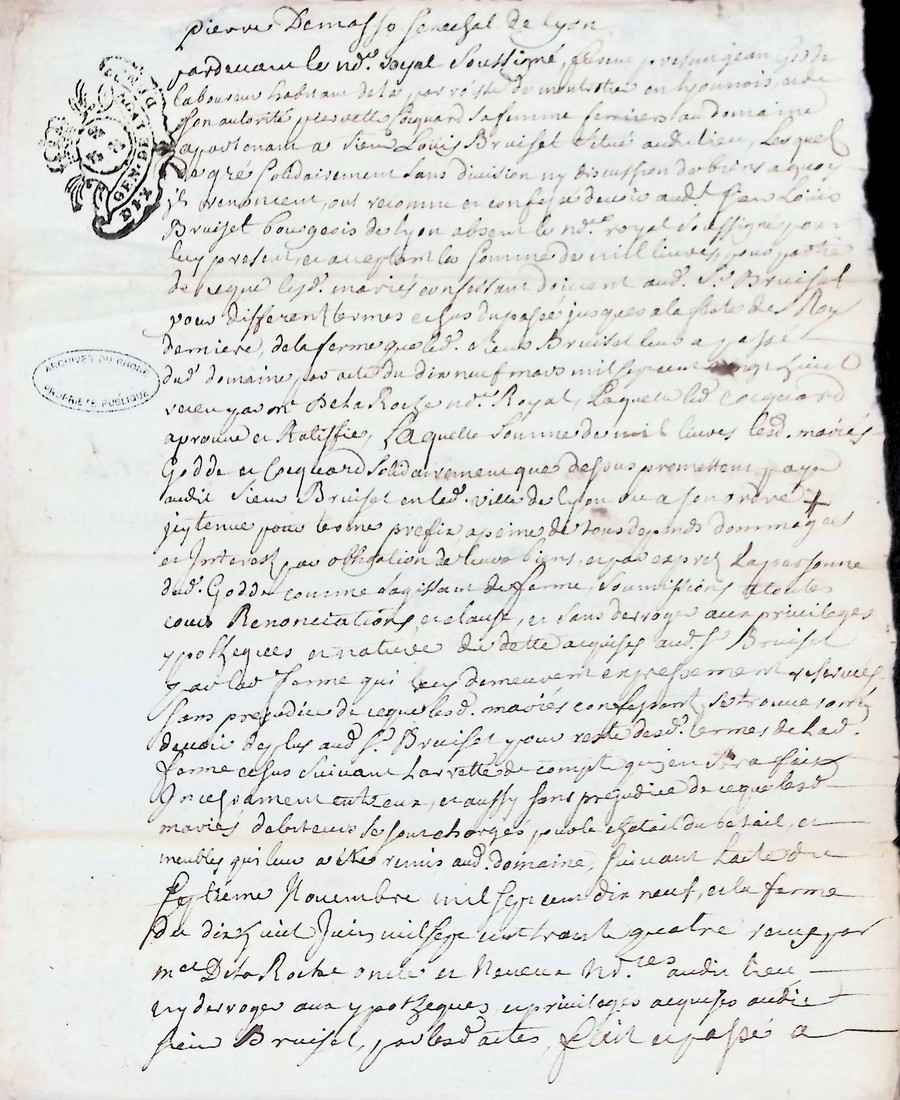 pierre Demasso Senechal de Lyon
pardevant le nore. royal Soussigné, furent presens jean Godde
laboureur habitant de la parroisse de en lyonnois, et de
son autorité pierrette Cocquard sa femme fermiers au domaine
appartenant a Sieur Louis Bruiset Situé audit lieu, Lesquels
de gré Solidairement Sans division ny discussion de biens a quoy
ils renoncent, ont reconnu et confessé devoir audt. Sieur Louis
Bruiset bourgeois de lyon absent le nore. royal Soussigné pour
luy present, et acceptant la Somme de mill livres, pour partie
de ce que lesd. mariés confessent doivent aud. Sr. Bruiset
pour differents termes echus du passé jusques a la feste des Roys
derniere, de la ferme que led. Sieur Bruiset leur a passé
dud. domaine par acte du dix neuf mars mil sept cent vingt huict
receu par me. De la Roche nore. Royal, Laquelle lad. Cocquard
aprouve et Ratiffie, Laquelle Somme de mil livres lesd. mariés
Godde et Cocquard Solidairement que dessus promettent payer
audit Sieur Bruiset en lad. ville de lyon ou a son ordre +
icy tenue pour terme prefix a peine de tous depends dommages
et Interest par obligation de leurs biens, et par exprez la personne
dud. Godde comme s'agissant de ferme, Soumissions a toutes
cours Renonciations, et clause, et sans derroger aux privileges
ypotheques et nature de dette acquises aud. Sr. Bruiset
par lad. ferme qui luy demeurent expressement reservés
Sans prejudice de ce que lesd. mariés confessent se trouve
devoir de plus aud. Sr. Bruiset pour reste desd. termes de lad.
ferme echus Suivant l'arretté de compte qui en Sera fait
Incessament entre eux, et aussy Sans prejudice de ce que lesd.
mariés debiteurs se sont chargés pour le chetail du betail, et
meubles qui leur a été remis aud. domaine, Suivant l'acte du
Septieme Novembre mil sept cent dix neuf, et la ferme
du dix huit Juin mil sept cent trente quatre receus par
mes. De la Roche oncle et Neveux Nores. audit lieu
ny derroger aux ypotheques, et privileges acquises audit
Sieur Bruiset, par lesd. actes, fait et passé a
GEN. DE L
DIX
ARCHIVES DU RHONE
PROPRIETE PUBLIQUE